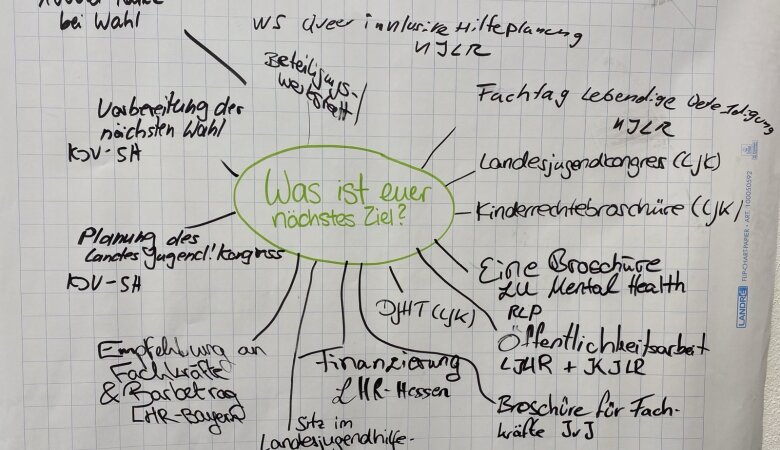 bei Wahl
WS Queer inklusive Hilfeplanung
NJLR
Beteiligungs-
werkstatt
Fachtag Lebendige Beteiligung
NJLR
Vorbereitung der
nächsten Wahl
KJV-SH
Landesjugendkongress (LJK)
Kinderrechtebroschüre (LJK)
Was ist euer
nächstes Ziel?
Planung des
Landesjugend.'kongress
KJV-SH
Eine Broschüre
zu Mental Health
RLP
DJHT (LJK)
Öffentlichkeitsarbeit
LJHR + KJLR
Empfehlung an
Fachkräfte
& Barbetrag
LHR-Bayern
Finanzierung
LHR-Hessen
Broschüre für Fach-
kräfte JvJ
Sitz im
Landesjugendhilfe-
LANDRÉ FLIP-CHART-PAPIER • ART. 100050592